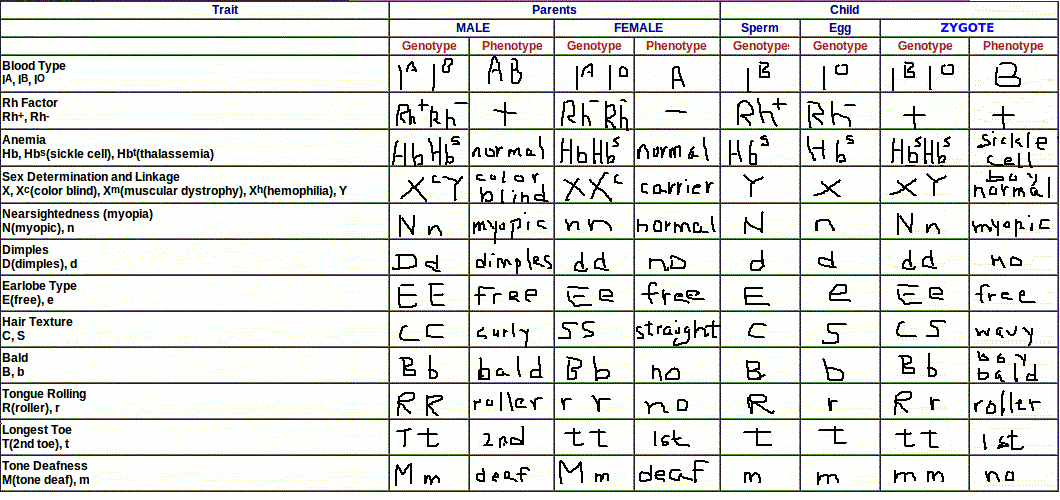 Trait Parents Child
MALE FEMALE Sperm Egg ZYGOTE
Genotype Phenotype Genotype Phenotype Genotype Genotype Genotype Phenotype
Blood Type
IA, IB, IO
IA IB AB IA IO A IB IO IB IO B
Rh Factor
Rh+, Rh-
Rh+Rh- + Rh-Rh- - Rh+ Rh- + +
Anemia
Hb, Hbs(sickle cell), Hbt(thalassemia)
HbHbs normal HbHbs normal Hbs Hbs HbsHbs sickle cell
Sex Determination and Linkage
X, Xc(color blind), Xm(muscular dystrophy), Xh(hemophilia), Y
XcY color blind XXc carrier Y X XY boy normal
Nearsightedness (myopia)
N(myopic), n
Nn myopic nn normal N n Nn myopic
Dimples
D(dimples), d
Dd dimples dd no d d dd no
Earlobe Type
E(free), e
EE free Ee free E e Ee free
Hair Texture
C, S
CC curly SS straight C S CS wavy
Bald
B, b
Bb bald Bb no B b Bb boy bald
Tongue Rolling
R(roller), r
RR roller rr no R r Rr roller
Longest Toe
T(2nd toe), t
Tt 2nd tt 1st t t tt 1st
Tone Deafness
M(tone deaf), m
Mm deaf Mm deaf m m mm no